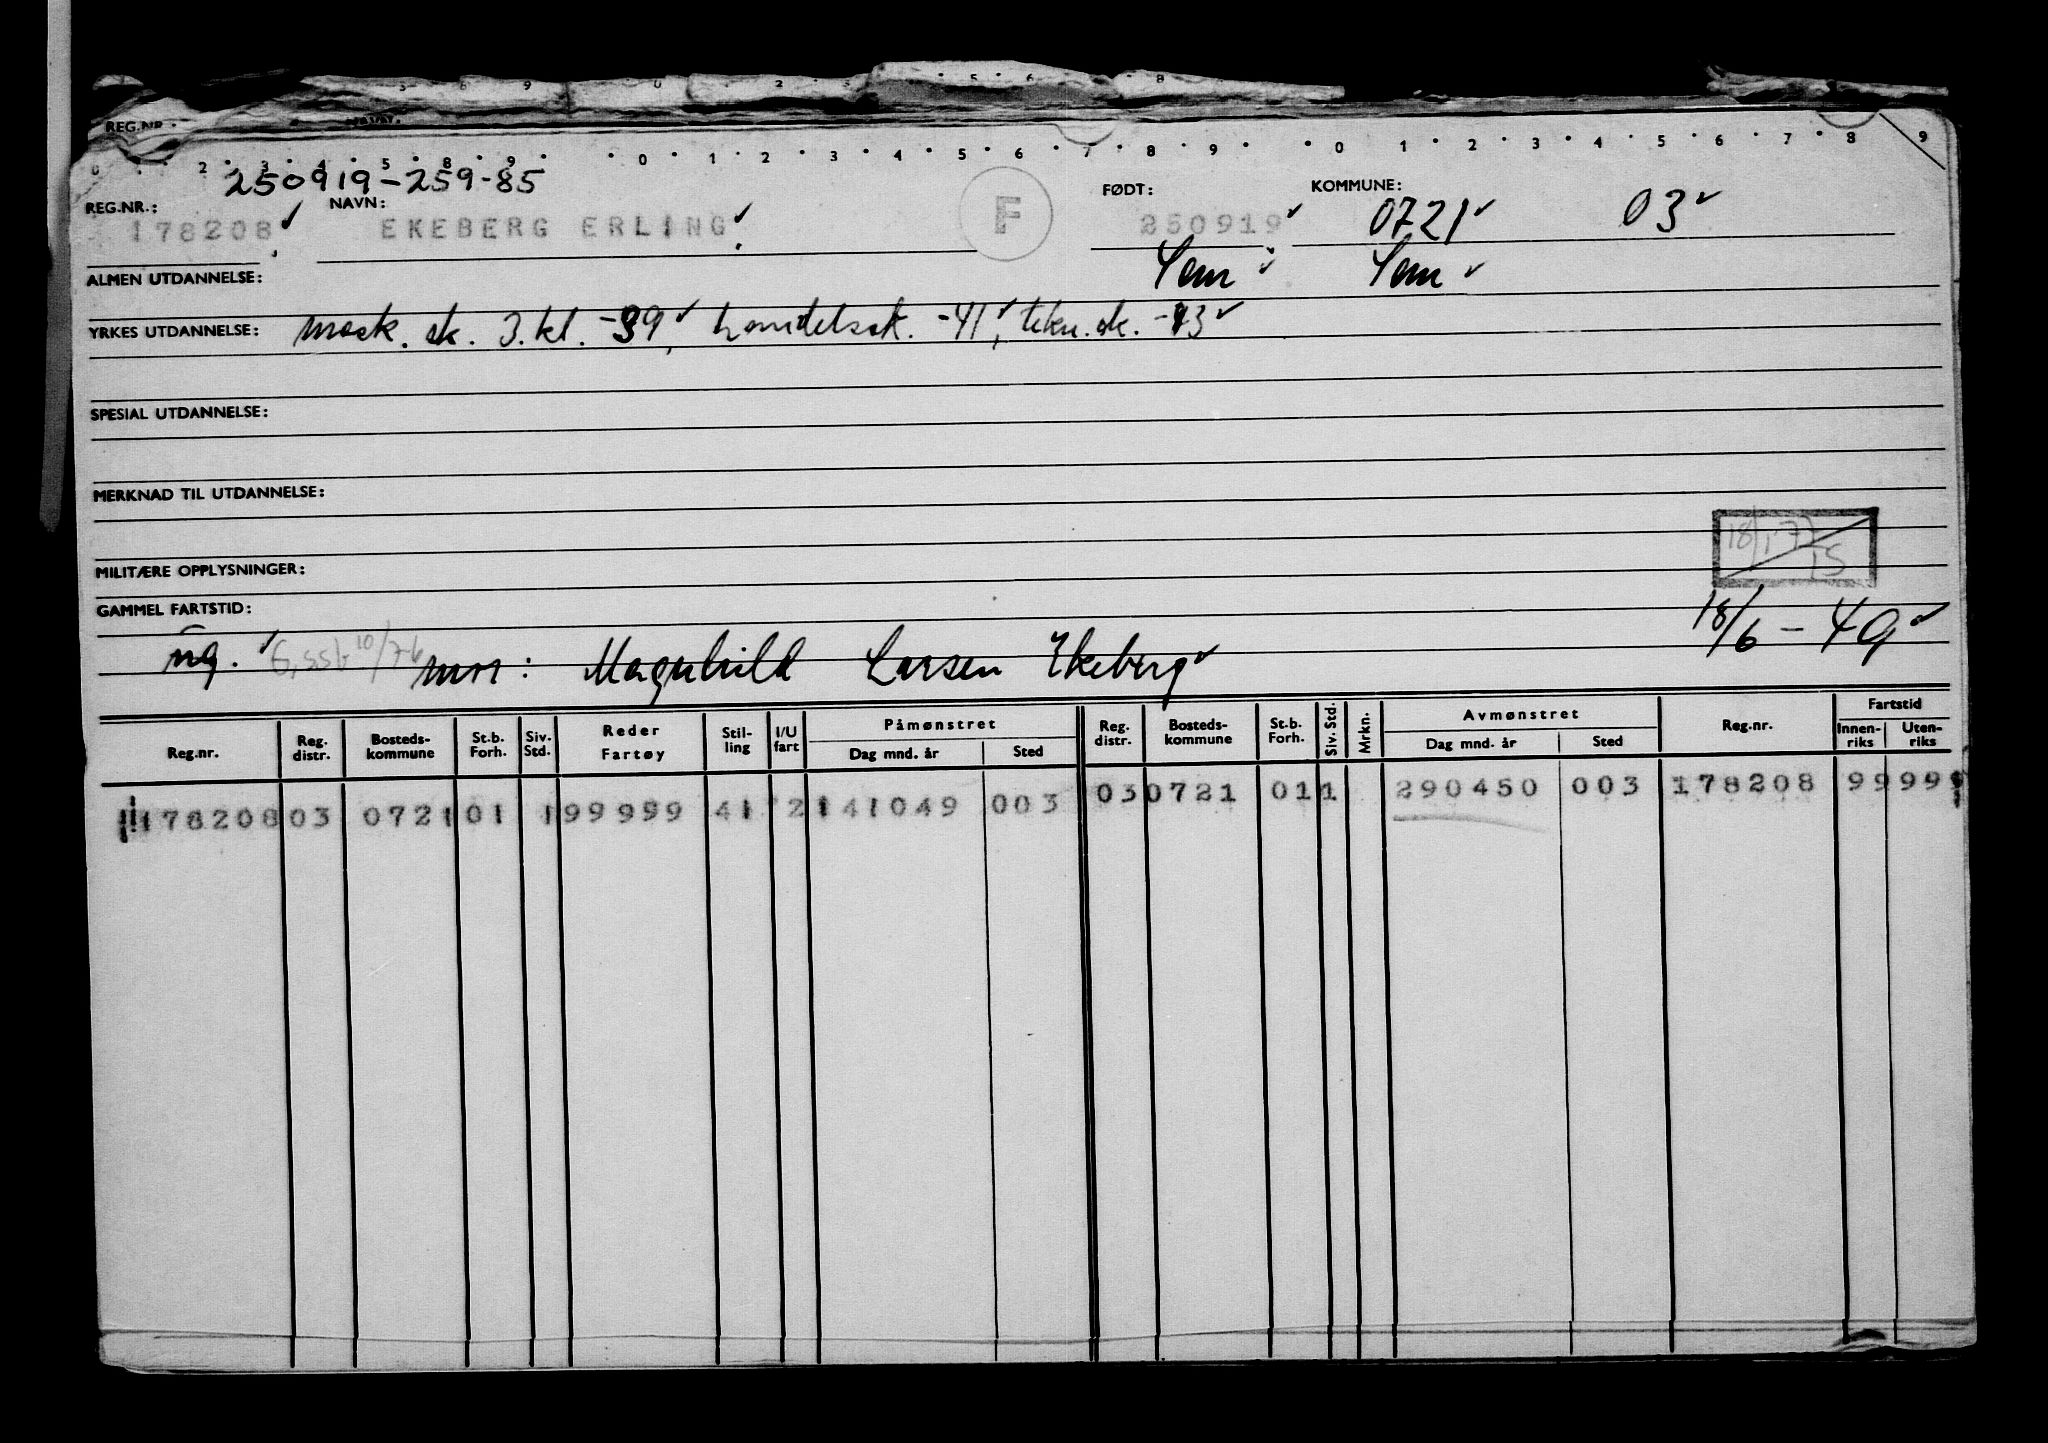 REG.NR.
0 . . 2 . 3 . 4 . 5 . 8 . 9 . . 0 . 1 . 2 . 3 . 4 . 5 . 6 . 7 . 8 . 9 . . 0 . 1 . 2 . 3 . 4 . 5 . 6 . 7 . 8 9
250919-259-85
REG.NR.: NAVN: F FØDT: KOMMUNE:
178208 ✓ EKEBERG ERLING ✓ 250919 ✓ 0721 ✓ 03 ✓
ALMEN UTDANNELSE: Sem ✓ Sem ✓
YRKES UTDANNELSE: mask. sk. 3. kl. -39 ✓, handelssk. -41 ✓, tekn. sk. -43 ✓
SPESIAL UTDANNELSE:
MERKNAD TIL UTDANNELSE:
18/1-77 IS
MILITÆRE OPPLYSNINGER:
GAMMEL FARTSTID:
18/6-49 ✓
ug. ✓ 10/76 mor: Magnhild Larsen Ekeberg ✓
Reg.nr. Reg. distr. Bosteds-kommune St.b. Forh. Siv. Std. Reder Fartøy Stil-ling I/U fart Påmønstret Dag mnd. år Sted Reg. distr. Bosteds-kommune St.b. Forh. Siv. Std. Mrkn. Avmønstret Dag mnd. år Sted Reg.nr. Fartstid Innen-riks Uten-riks
178208 03 0721 01 1 99999 41 2 141049 003 03 0721 01 1 290450 003 178208 99 99